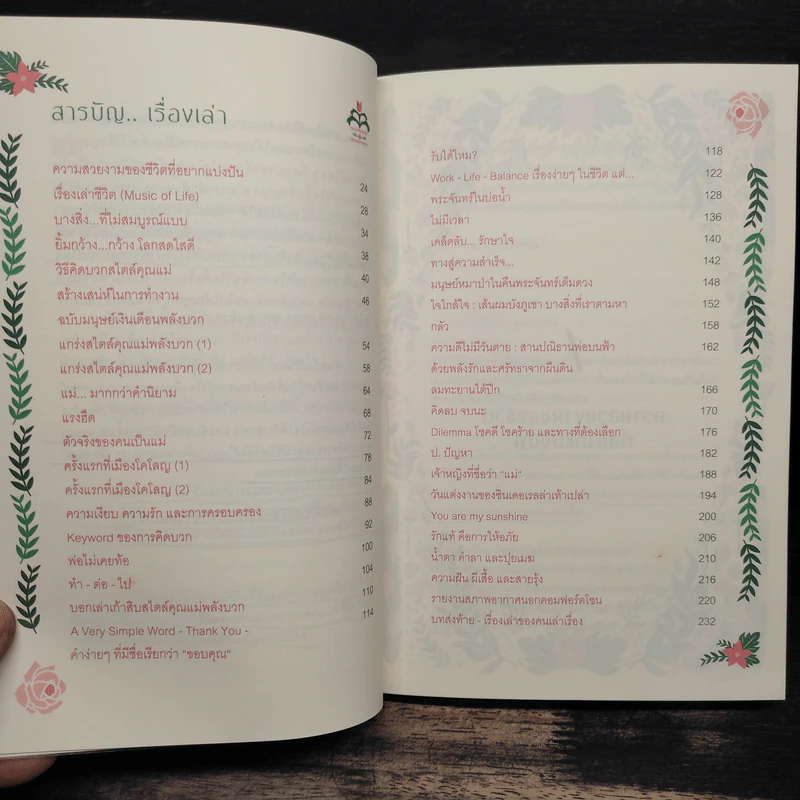 สารบัญ.. เรื่องเล่า
ความสวยงามของชีวิตที่อยากแบ่งปัน 24
เรื่องเล่าชีวิต (Music of Life) 28
บางสิ่ง...ที่ไม่สมบูรณ์แบบ 34
ยิ้มกว้าง...กว้าง โลกสดใสดี 38
วิธีคิดบวกสไตล์คุณแม่ 40
สร้างเสน่ห์ในการทำงาน 46
ฉบับมนุษย์เงินเดือนพลังบวก
แกร่งสไตล์คุณแม่พลังบวก (1) 54
แกร่งสไตล์คุณแม่พลังบวก (2) 58
แม่... มากกว่าคำนิยาม 64
แรงฮึด 68
ตัวจริงของคนเป็นแม่ 72
ครั้งแรกที่เมืองโคโลญ (1) 78
ครั้งแรกที่เมืองโคโลญ (2) 84
ความเงียบ ความรัก และการครอบครอง 88
Keyword ของการคิดบวก 92
พ่อไม่เคยท้อ 100
ทำ - ต่อ - ไป 104
บอกเล่าเก้าสิบสไตล์คุณแม่พลังบวก 110
A Very Simple Word - Thank You - 114
คำง่ายๆ ที่มีชื่อเรียกว่า "ขอบคุณ"
รับได้ไหม? 118
Work - Life - Balance เรื่องง่ายๆ ในชีวิต แต่... 122
พระจันทร์ในบ่อน้ำ 128
ไม่มีเวลา 136
เคล็ดลับ... รักษาใจ 140
ทางสู่ความสำเร็จ... 142
มนุษย์หมาป่าในคืนพระจันทร์เต็มดวง 148
ใจใกล้ใจ : เส้นผมบังภูเขา บางสิ่งที่เราตามหา 152
กลัว 158
ความดีไม่มีวันตาย : สานปณิธานพ่อบนฟ้า 162
ด้วยพลังรักและศรัทธาจากผืนดิน
ลมทะยานใต้ปีก 166
คิดลบ จบนะ 170
Dilemma โชคดี โชคร้าย และทางที่ต้องเลือก 176
ป. ปัญหา 182
เจ้าหญิงที่ชื่อว่า "แม่" 188
วันแต่งงานของซินเดอเรลล่าเท้าเปล่า 194
You are my sunshine 200
รักแท้ คือการให้อภัย 206
น้ำตา คำลา และปุยเมฆ 210
ความฝัน ผีเสื้อ และสายรุ้ง 216
รายงานสภาพอากาศนอกคอมฟอร์ตโซน 220
บทส่งท้าย - เรื่องเล่าของคนเล่าเรื่อง 232